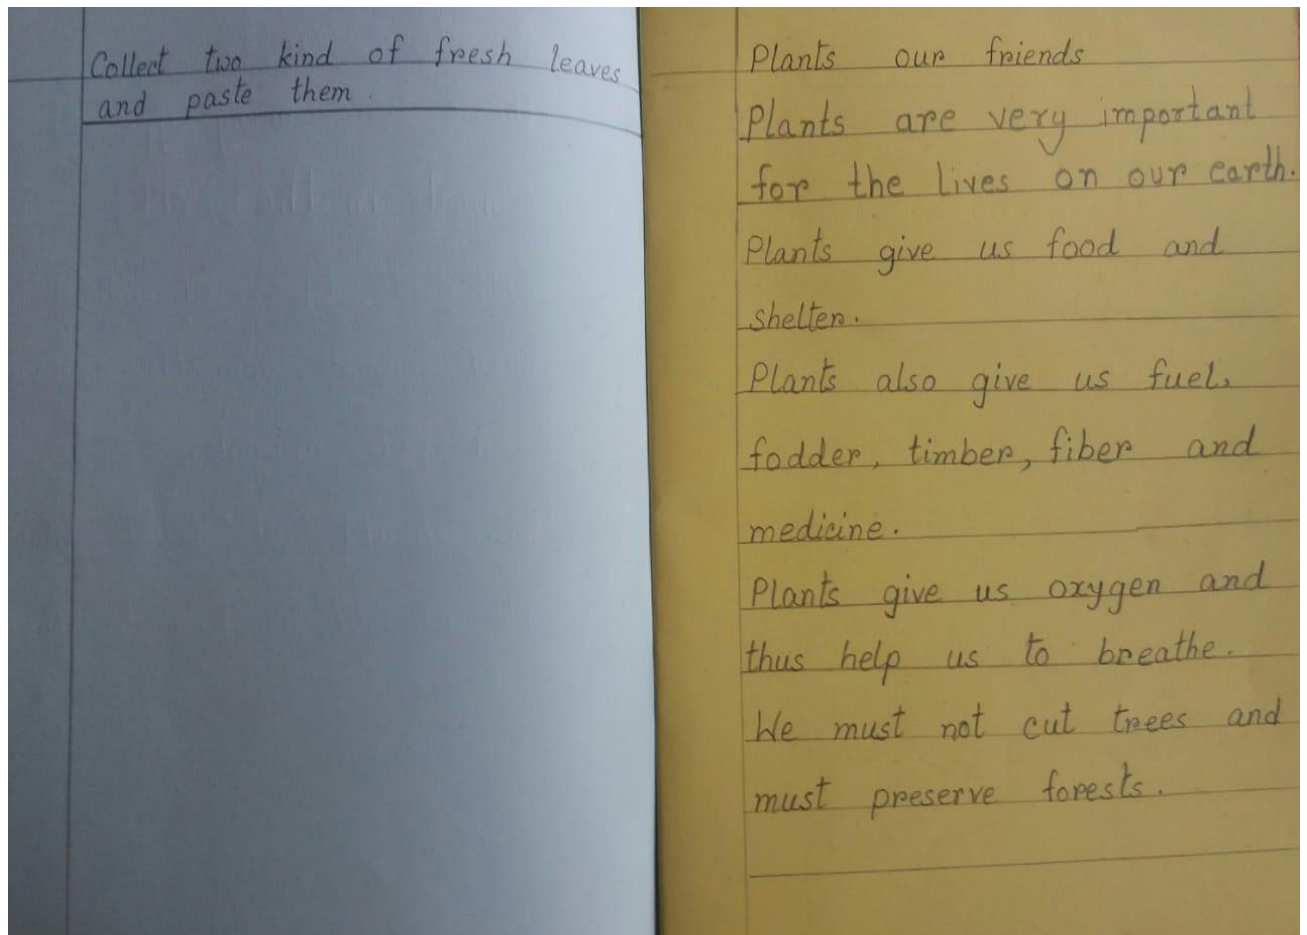 Collect two kind of fresh leaves
and paste them.
Plants our friends
Plants are very important
for the lives on our earth.
Plants give us food and
shelter.
Plants also give us fuel,
fodder, timber, fiber and
medicine.
Plants give us oxygen and
thus help us to breathe.
We must not cut trees and
must preserve forests.